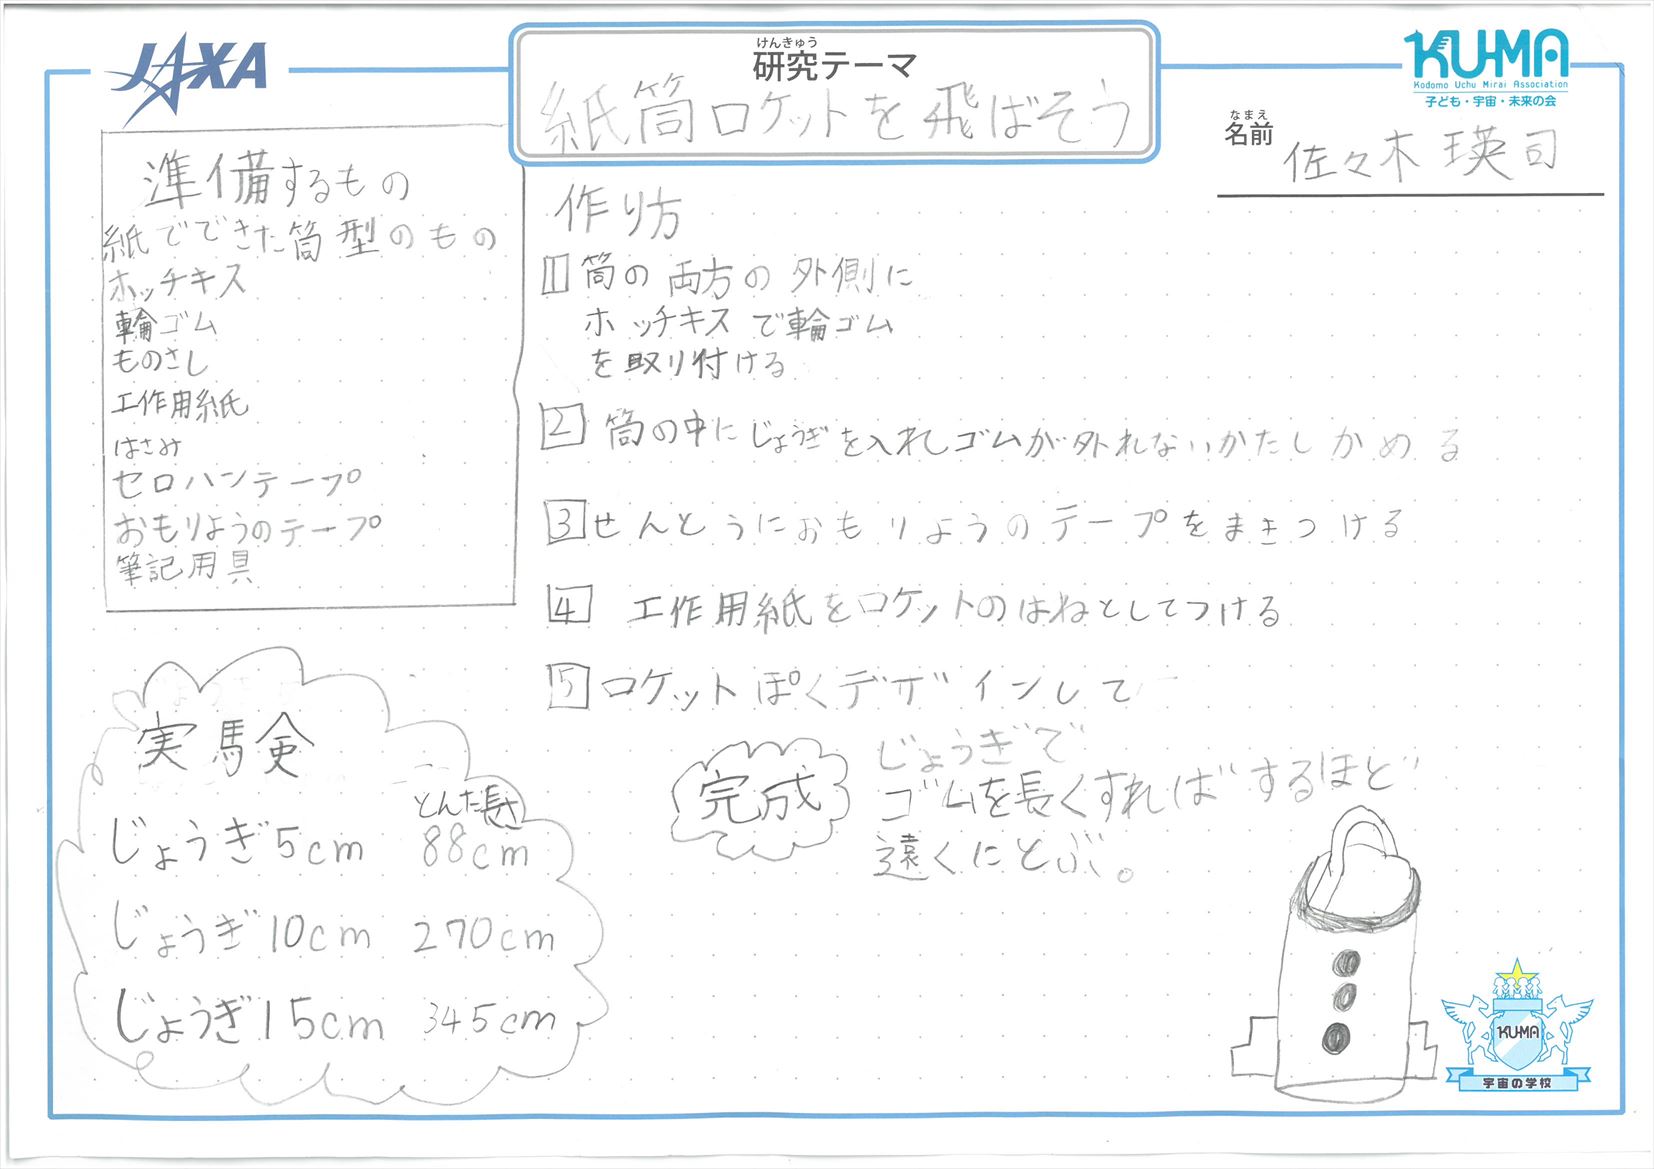 JAXA
けんきゅう
研究テーマ
紙筒ロケットを飛ばそう
KU-MA
Kodomo Uchu Mirai Association
子ども・宇宙・未来の会
なまえ
名前
佐々木 瑛司
準備するもの
紙でできた筒型のもの
ホッチキス
輪ゴム
ものさし
工作用紙
はさみ
セロハンテープ
おもりようのテープ
筆記用具
作り方
1 筒の両方の外側に
ホッチキスで輪ゴム
を取り付ける
2 筒の中にじょうぎを入れしゴムが外れないかたしかめる
3 せんとうにおもりようのテープをまきつける
4 工作用紙をロケットのはねとしてつける
5 ロケットぽくデザインして
完成
じょうぎで
ゴムを長くすればするほど
遠くにとぶ。
実験
とんだ長さ
じょうぎ5cm 88cm
じょうぎ10cm 270cm
じょうぎ15cm 345cm
KU-MA
宇宙の学校